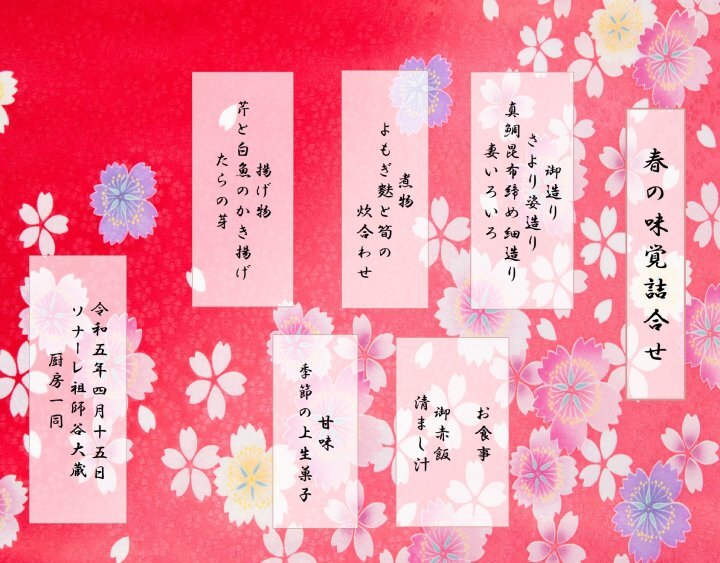 春の味覚詰合せ
御造り
さより姿造り
真鯛昆布締め細造り
妻いろいろ
煮物
よもぎ麩と筍の
炊合わせ
揚げ物
芹と白魚のかき揚げ
たらの芽
お食事
御赤飯
清まし汁
甘味
季節の上生菓子
令和五年四月十五日
ソナーレ祖師谷大蔵
厨房一同